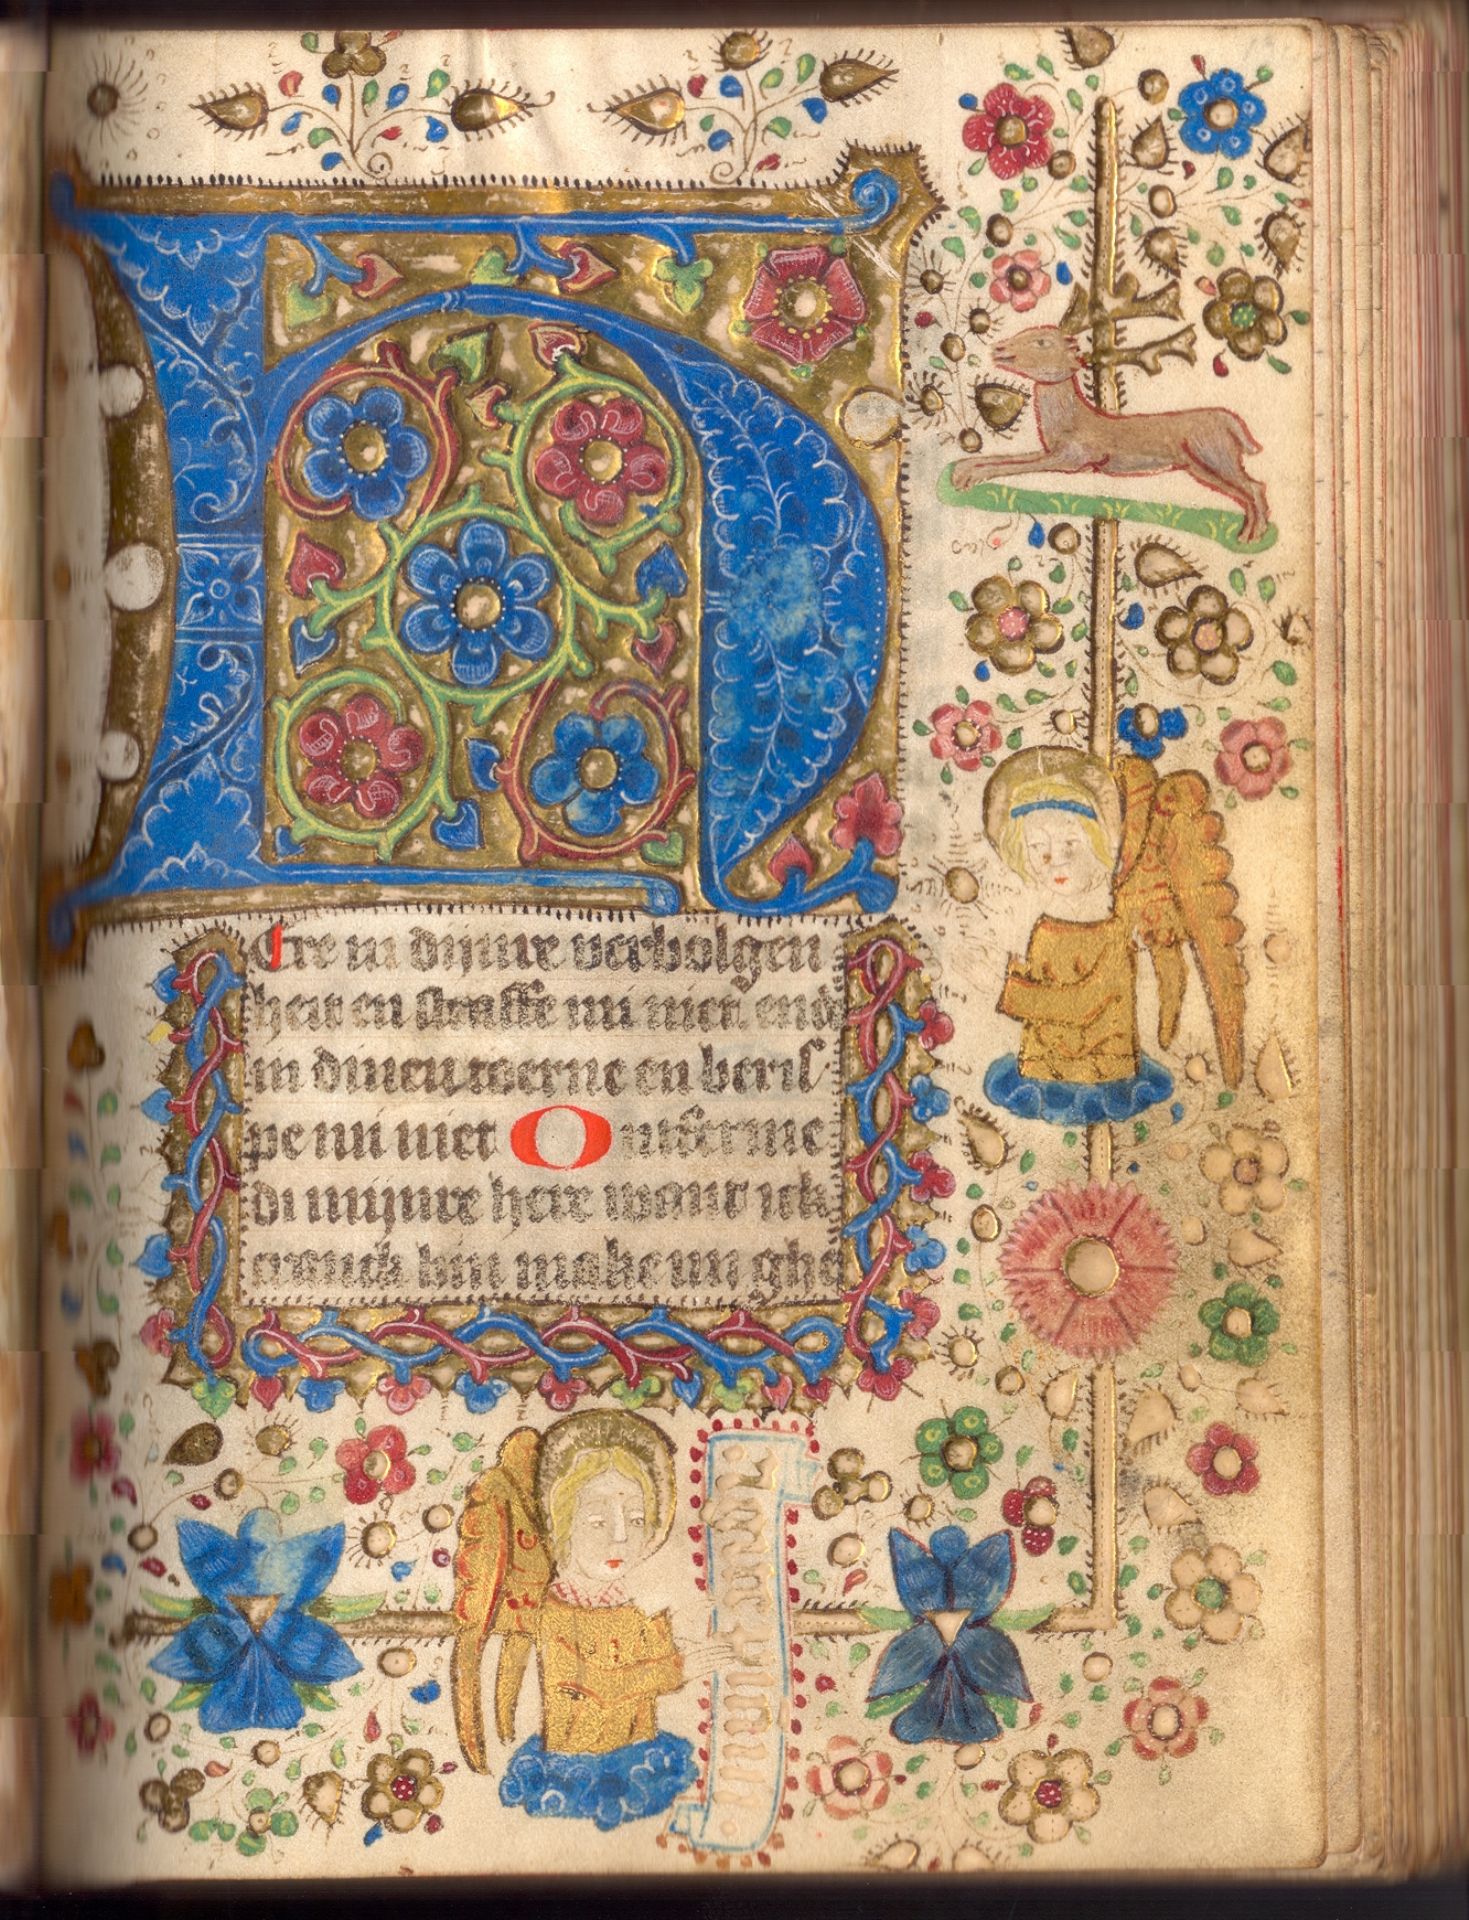 HEre in dijnre verbolgen
heit en straffe mi niet end
in dinen toerne en beris
pe mi niet Ontferme
di mijnre here want ick
cranck bin make mi ghe